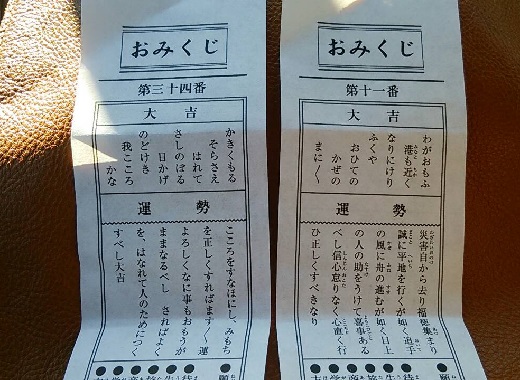 おみくじ
第三十四番
大吉
かきくもる
そらさえ
はれて
さしのぼる
日かげ
のどけき
我こころ
かな
運勢
こころをすなほにし、みもち
を正しくすればます〳〵運
よろしくなに事もおもうが
ままなるべし さればよく
を、はなれて人のためにつく
すべし大吉
おみくじ
第十一番
大吉
わがおもふ
港も近く
なりにけり
ふくや
おひての
かぜの
まに〳〵
運勢
災害自から去り福徳集まり
誠に平地を行くが如く追手
の風に舟の進むが如く目上
の人の助をうけて喜事ある
べし信心怠りなく心直く行
ひ正しくすべきなり